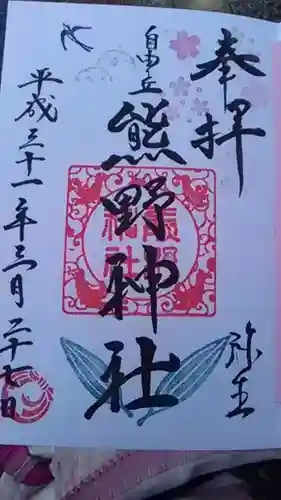 奉拝
自由が丘
熊野神社
弥生
平成三十一年三月二十七日
熊野神社